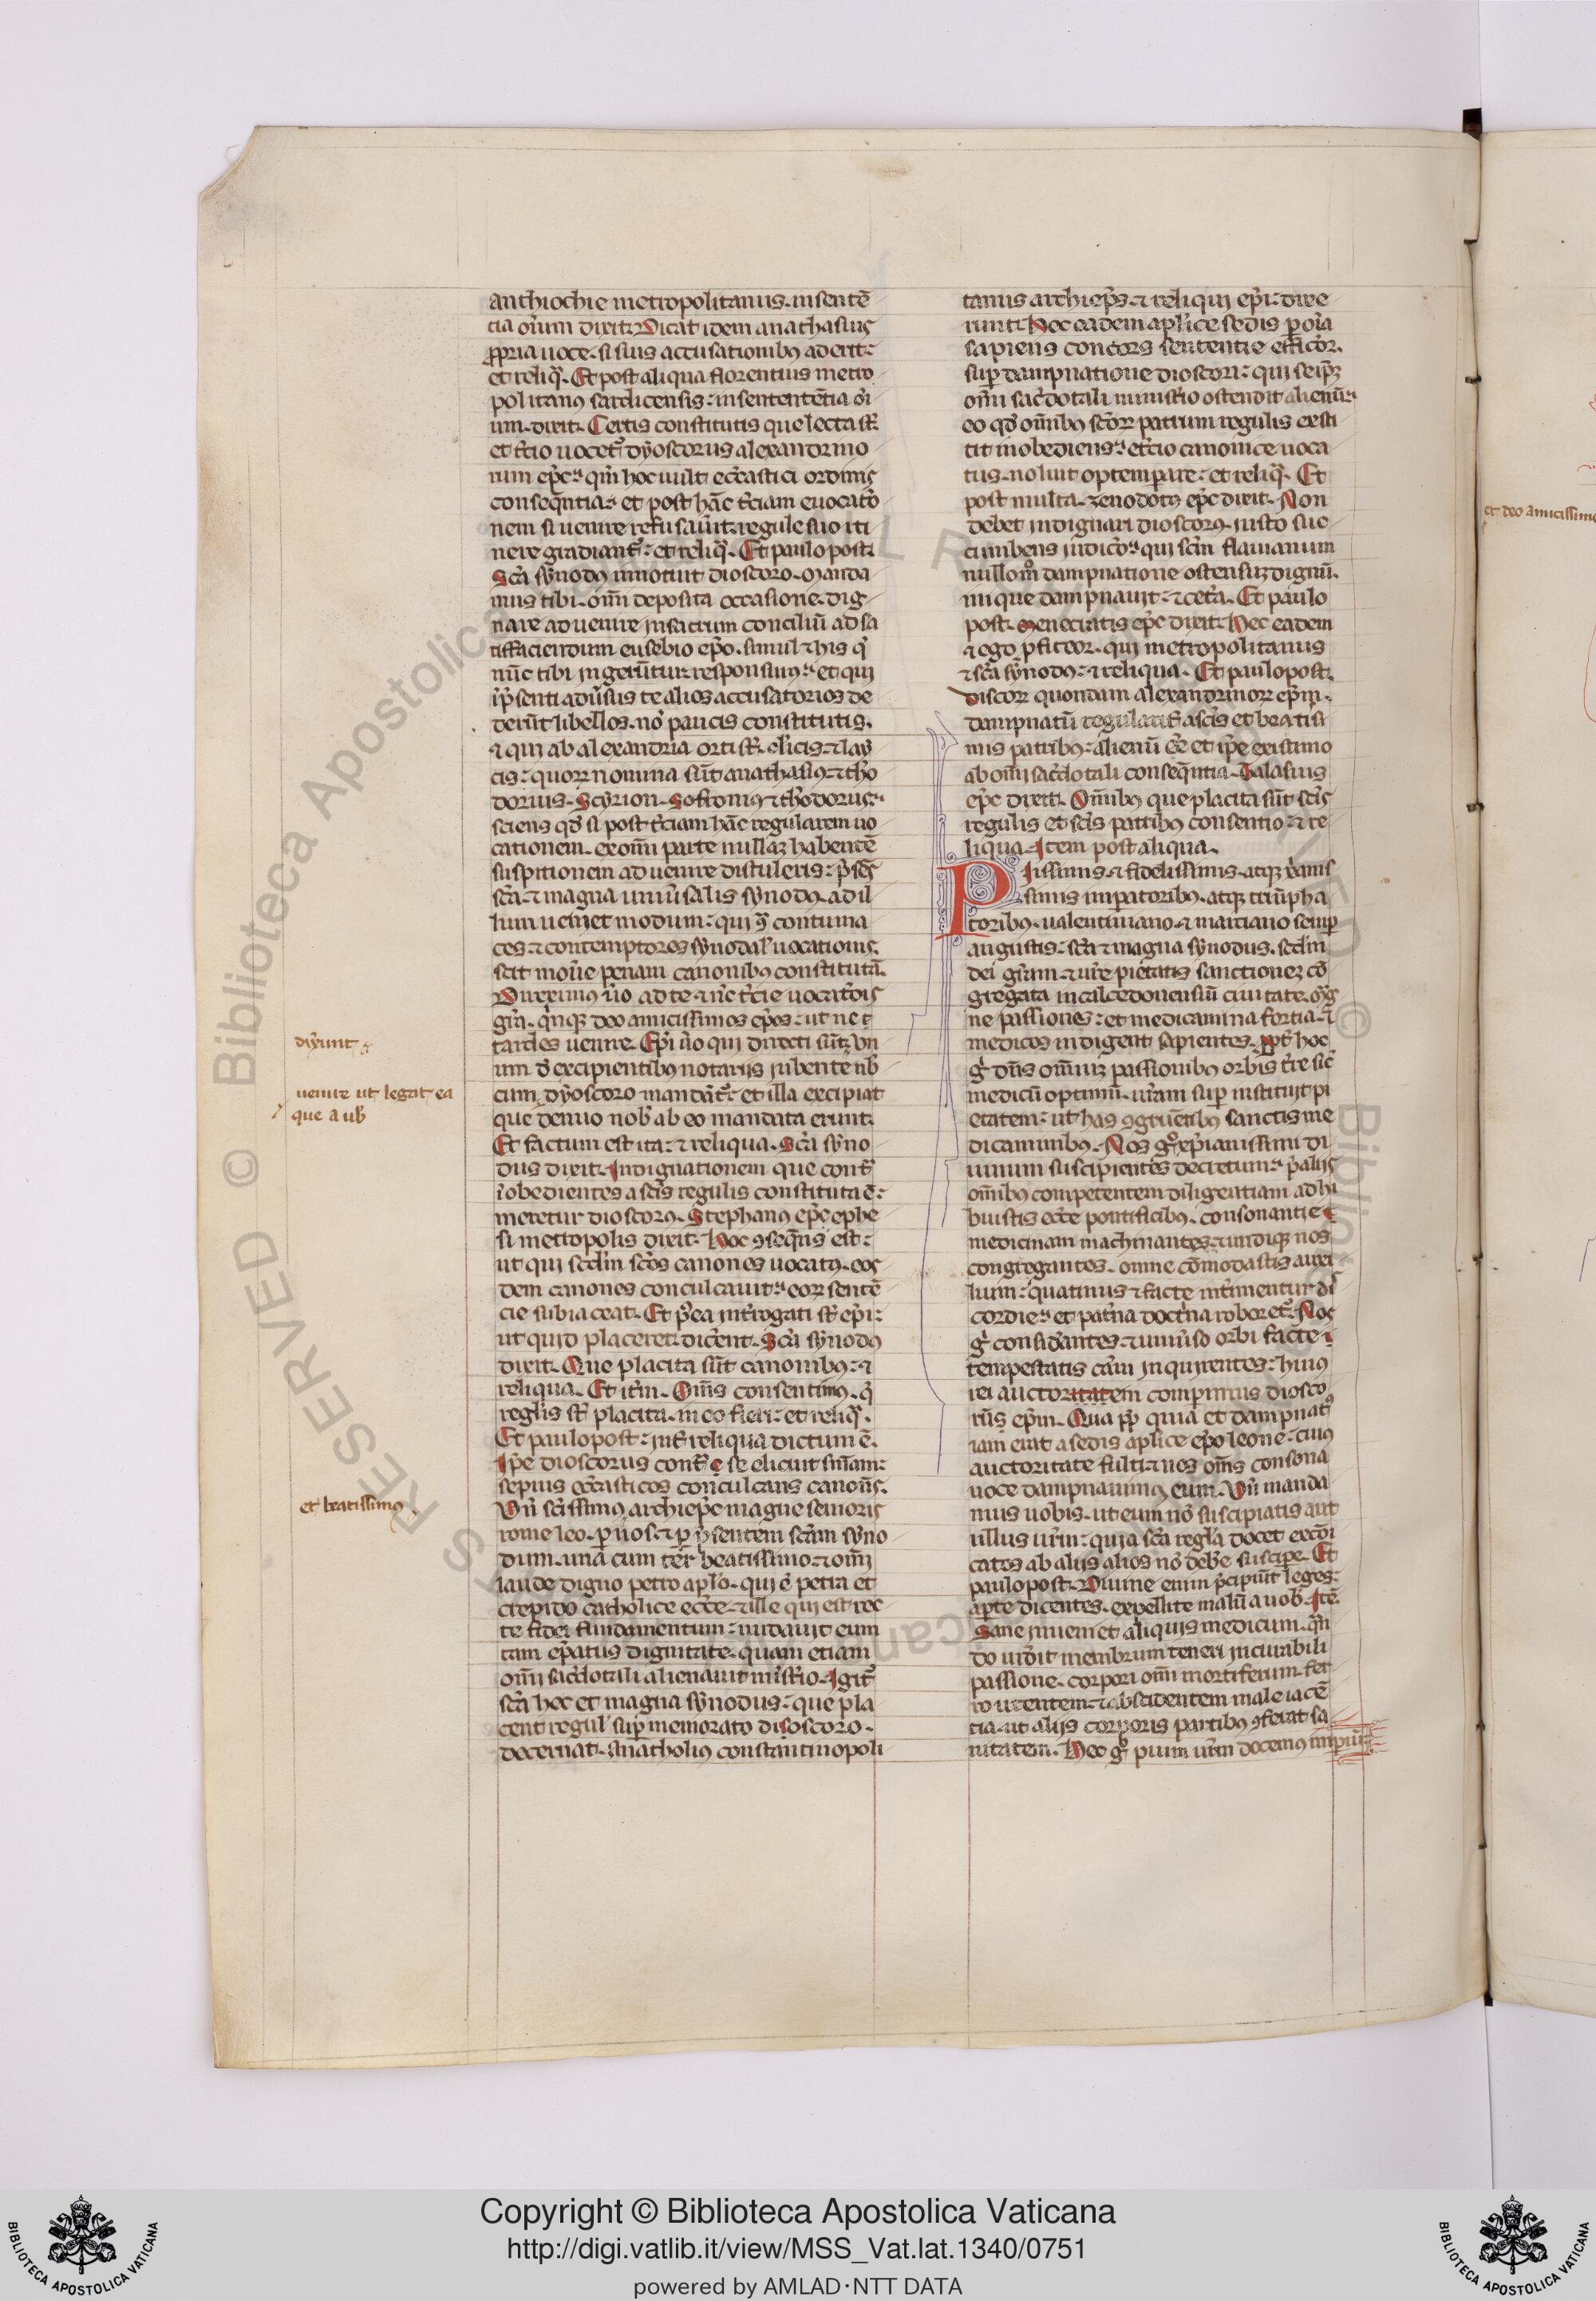 anthiochie metropolitanus. in sentē
tia oīum dixit. Dicat idem anathasius
ꝓpria uoce. si suis accusationibꝰ aderit.
et reliq̄. Et post aliqua florentius metro
politanus sardicensis. in sententētia oī
um. dixit. Certis constitutis que lecta sūt
et t̄cio uocetᷣ dyoscorus alexandrino
rum ep̄c. qm̄ hoc uult eccᷣastici ordinis
conseqᷠntia. et post hāc t̄ciam euocatᷣo
nem si uenire refusauᷣit. regule suo iti
nere gradiantᷣ. et reliq̄. Et paulo post.
Sc̄a synodꝰ innotuit dioscoro. Manda
mus tibi. om̄i deposita occasione. dig
nare aduenire in sacrum conciliū ad sa
tiffaciendum eusebio ep̄o. simul ⁊ his q̄
nūc tibi ingerūtur responsiuis. et qui
p̄senti aduᷣsus te alios accusatorios de
derūt libellos. nō paucis constitutis.
⁊ qui ab alexandria orti sūt. clᷣicis. ⁊ lay
cis. quoꝝ nomina sūt anathasiꝰ. ⁊ theo
dorius. Scyrion. Sofronius ⁊ theodorus.
sciens qd̄ si post t̄ciam hāc regularem uo
cationem. ex om̄i parte nullaꝫ habentē
suspitionem aduenire distuleris. p̄sēs
sc̄a ⁊ magna uniūsalis synodꝰ. ad il
lum ueniet modum. qui qᷓ contuma
ces ⁊ contemptores synodalᷣ uocationis.
scit mouᷣe penam canonibꝰ constitutā.
Direximꝰ ūo ad te ⁊ nᷣc t̄cie uocatᷣois
gᷓra. qᷠnqꝫ deo amicissimos ep̄os. ut nec
tardes uenire. Ep̄i ūo qui directi sūt.
um d̄ excipientibꝰ notariis iubente nb̄
cum dyoscoro mandātᷣ. et illa excipiat
que denuo nob̄ ab eo mandata erunt.
Et factum est ita. ⁊ reliqua. Sc̄a syno
dus dixit. Indignationem que contᷓ
īobedientes a sc̄is regulis constituta ē.
meretur dioscorꝰ. Stephanus ep̄c ephe
si metropolis dixit. Hoc ꝯseqᷠns est.
ut qui scdm̄ sc̄os canones uocatꝰ. eos
dem canones conculcauit. eoꝝ sentē
cie subiaceat. Et p̄ea int̄rogati sūt ep̄i.
ut quid placeret dicᷣent. Sc̄a synodꝰ
dixit. Que placita sūt canonibꝰ. ⁊
reliqua. Et itᷣm. Oīs consentimꝰ. q̄
reglᷣis sūt placita. in eo fieri. et reliq̄.
Et paulo post. int̄ reliqua dictum ē.
Ipse dioscorus contᷓ se elicuit sn̄iam.
sepius eccᷣasticos conculcans canones.
Vn̄ sc̄issimꝰ archiep̄c magne senioris
rome leo. ꝑ nos. ⁊ ꝑ p̄sentem sc̄am syno
dum. una cum tᷣer beatissimo. ⁊ om̄i
laude digno petro apᷣlo. qui ē petra et
crepido catholice eccᷣe. ⁊ ille qui est rec
te fidei fundamentum. nudauit eum
tam ep̄atus dignitate. quam etiam
om̄i sacᷣdotali alienauit miᷣstᷣio. Igitᷣ
sc̄a hec et magna synodus. que pla
cent regulᷣ sup̄ memorato dioscoro.
decernat. Anatholiꝰ constantinopoli
dixerunt
uenire ut legat ea
que a ub̄
et beatissimꝰ
tanus archiep̄s. ⁊ reliqui ep̄i. dixe
runt. Hec eadem apᷣlice sedis ꝑ oīa
sapiens concors sententie efficior.
sup̄ dampnatione dioscori. qui seip̄ꝫ
om̄i sacᷣdotali ministᷣio ostendit alienū.
eo qd̄ oīnibꝰ sc̄oꝝ patrum regulis exsti
tit inobediens. et t̄cio canonice uoca
tus. noluit optemꝑare. et reliq̄. Et
post multa. zenodotꝰ ep̄c dixit. Non
debet indignari dioscorꝰ. iusto suc
cumbens iudicᷣo. qui sc̄m flauianum
nullom̄ dampnatione ostensuꝫ dignū.
inique dampnauit. ⁊ cetᷣa. Et paulo
post. Menecratis ep̄c dixit. Hec eadem
⁊ ego ꝓfiteor. qui metropolitanus
⁊ sc̄a synodꝰ. ⁊ reliqua. Et paulo post.
discoꝝ quondam alexandrinoꝝ ep̄m.
dampnatū regularitᷣ a sc̄is et beatissi
mis patribꝰ. alienū ēe et ip̄e existimo
ab om̄i sacᷣdotali conseqᷠntia. Ialasius
ep̄c dixit. Om̄ibꝰ que placita sūt sc̄is
regulis et sc̄is patribꝰ consentio. ⁊ re
liqua. Item post aliqua.
Piissimis ⁊ fidelissimis. atqꝫ xp̄ianis
simis imꝑatoribꝰ. atqꝫ triūpha
toribꝰ. ualentiniano ⁊ marciano semꝑ
augustis. sc̄a ⁊ magna synodus. scdm̄
dei gr̄am. ⁊ ur̄e pietatis sanctioneꝫ cō
gregata in calcedonensiū ciuitate.
ne passiones. et medicamina fortia. ⁊
medicos indigent sapientes. ꝓpt̄ hoc
gᷣ dn̄s om̄iuꝫ passionibꝰ orbis t̄re sic̄
medicū optimū. ur̄am sup̄ instituit pi
etatem. ut has ꝯgruētibꝰ sanctis me
dicaminibꝰ. Nos gᷣ xp̄ianissimi di
uinum suscipientes decretum. p̄ aliis
om̄ibꝰ competentem diligentiam adhi
buistis eccᷣe pontificibꝰ. consonantie
medicinam machinantes. ⁊ undiqꝫ nos
congregantes. omne cōmodastis auxi
lium. quatinus ⁊ facte int̄imentur dis
cordie. et patᷣna doctᷣna roboretᷣ. Nos
gᷣ considᷣantes. ⁊ uniūso orbi facte
tempestatis cām inquirentes. huius
rei auctorem comperimus diosco
rū ep̄m. Qua ꝓpt̄ quia et dampnatꝰ
iam erit a sedis apᷣlice ep̄o leone. cuius
auctoritate fulti ⁊ nos oīs consona
uoce dampnauimꝰ eum. Vn̄ manda
mus uobis. ut eum nō suscipiatis aut
ullus ur̄m. quia sc̄a reglᷣa docet excōi
catos ab aliis alios nō debᷣe suscipe. Et
paulo post. Diuine enim p̄cipiūt leges.
apᷣte dicentes. expellite malū a uob̄. Itē.
Sane inueniet aliquis medicum. qn̄
do urᷣdit membrum teneri incurabili
passione. corpori om̄i mortiferum. fer
ro utentem. ⁊ abscidentem male iacē
tia. ut aliis corporis partibꝰ ꝯferat sa
nitatem. Hec gᷣ pium ur̄m docemꝰ imꝑiū
et deo amicissim
Copyright © Biblioteca Apostolica Vaticana
http://digi.vatlib.it/view/MSS_Vat.lat.1340/0751
powered by AMLAD·NTT DATA
BIBLIOTECA APOSTOLICA VATICANA
BIBLIOTECA APOSTOLICA VATICANA